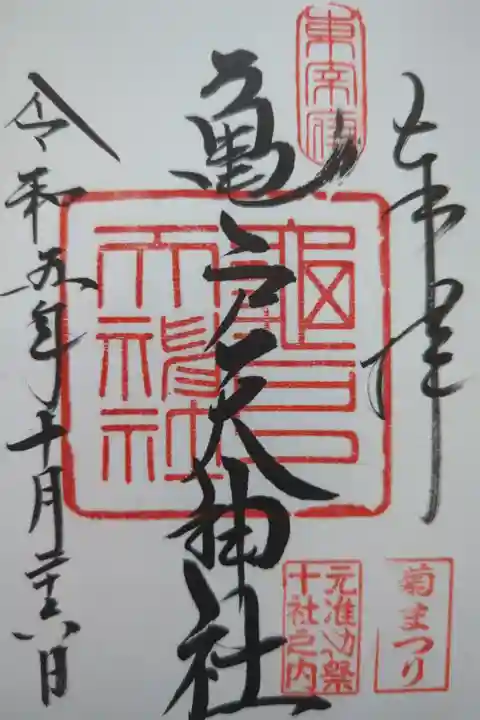 奉拝
東宰府
亀戸天神社
亀戸天神社
菊まつり
元准勅祭
十社之内
令和五年十月二十八日